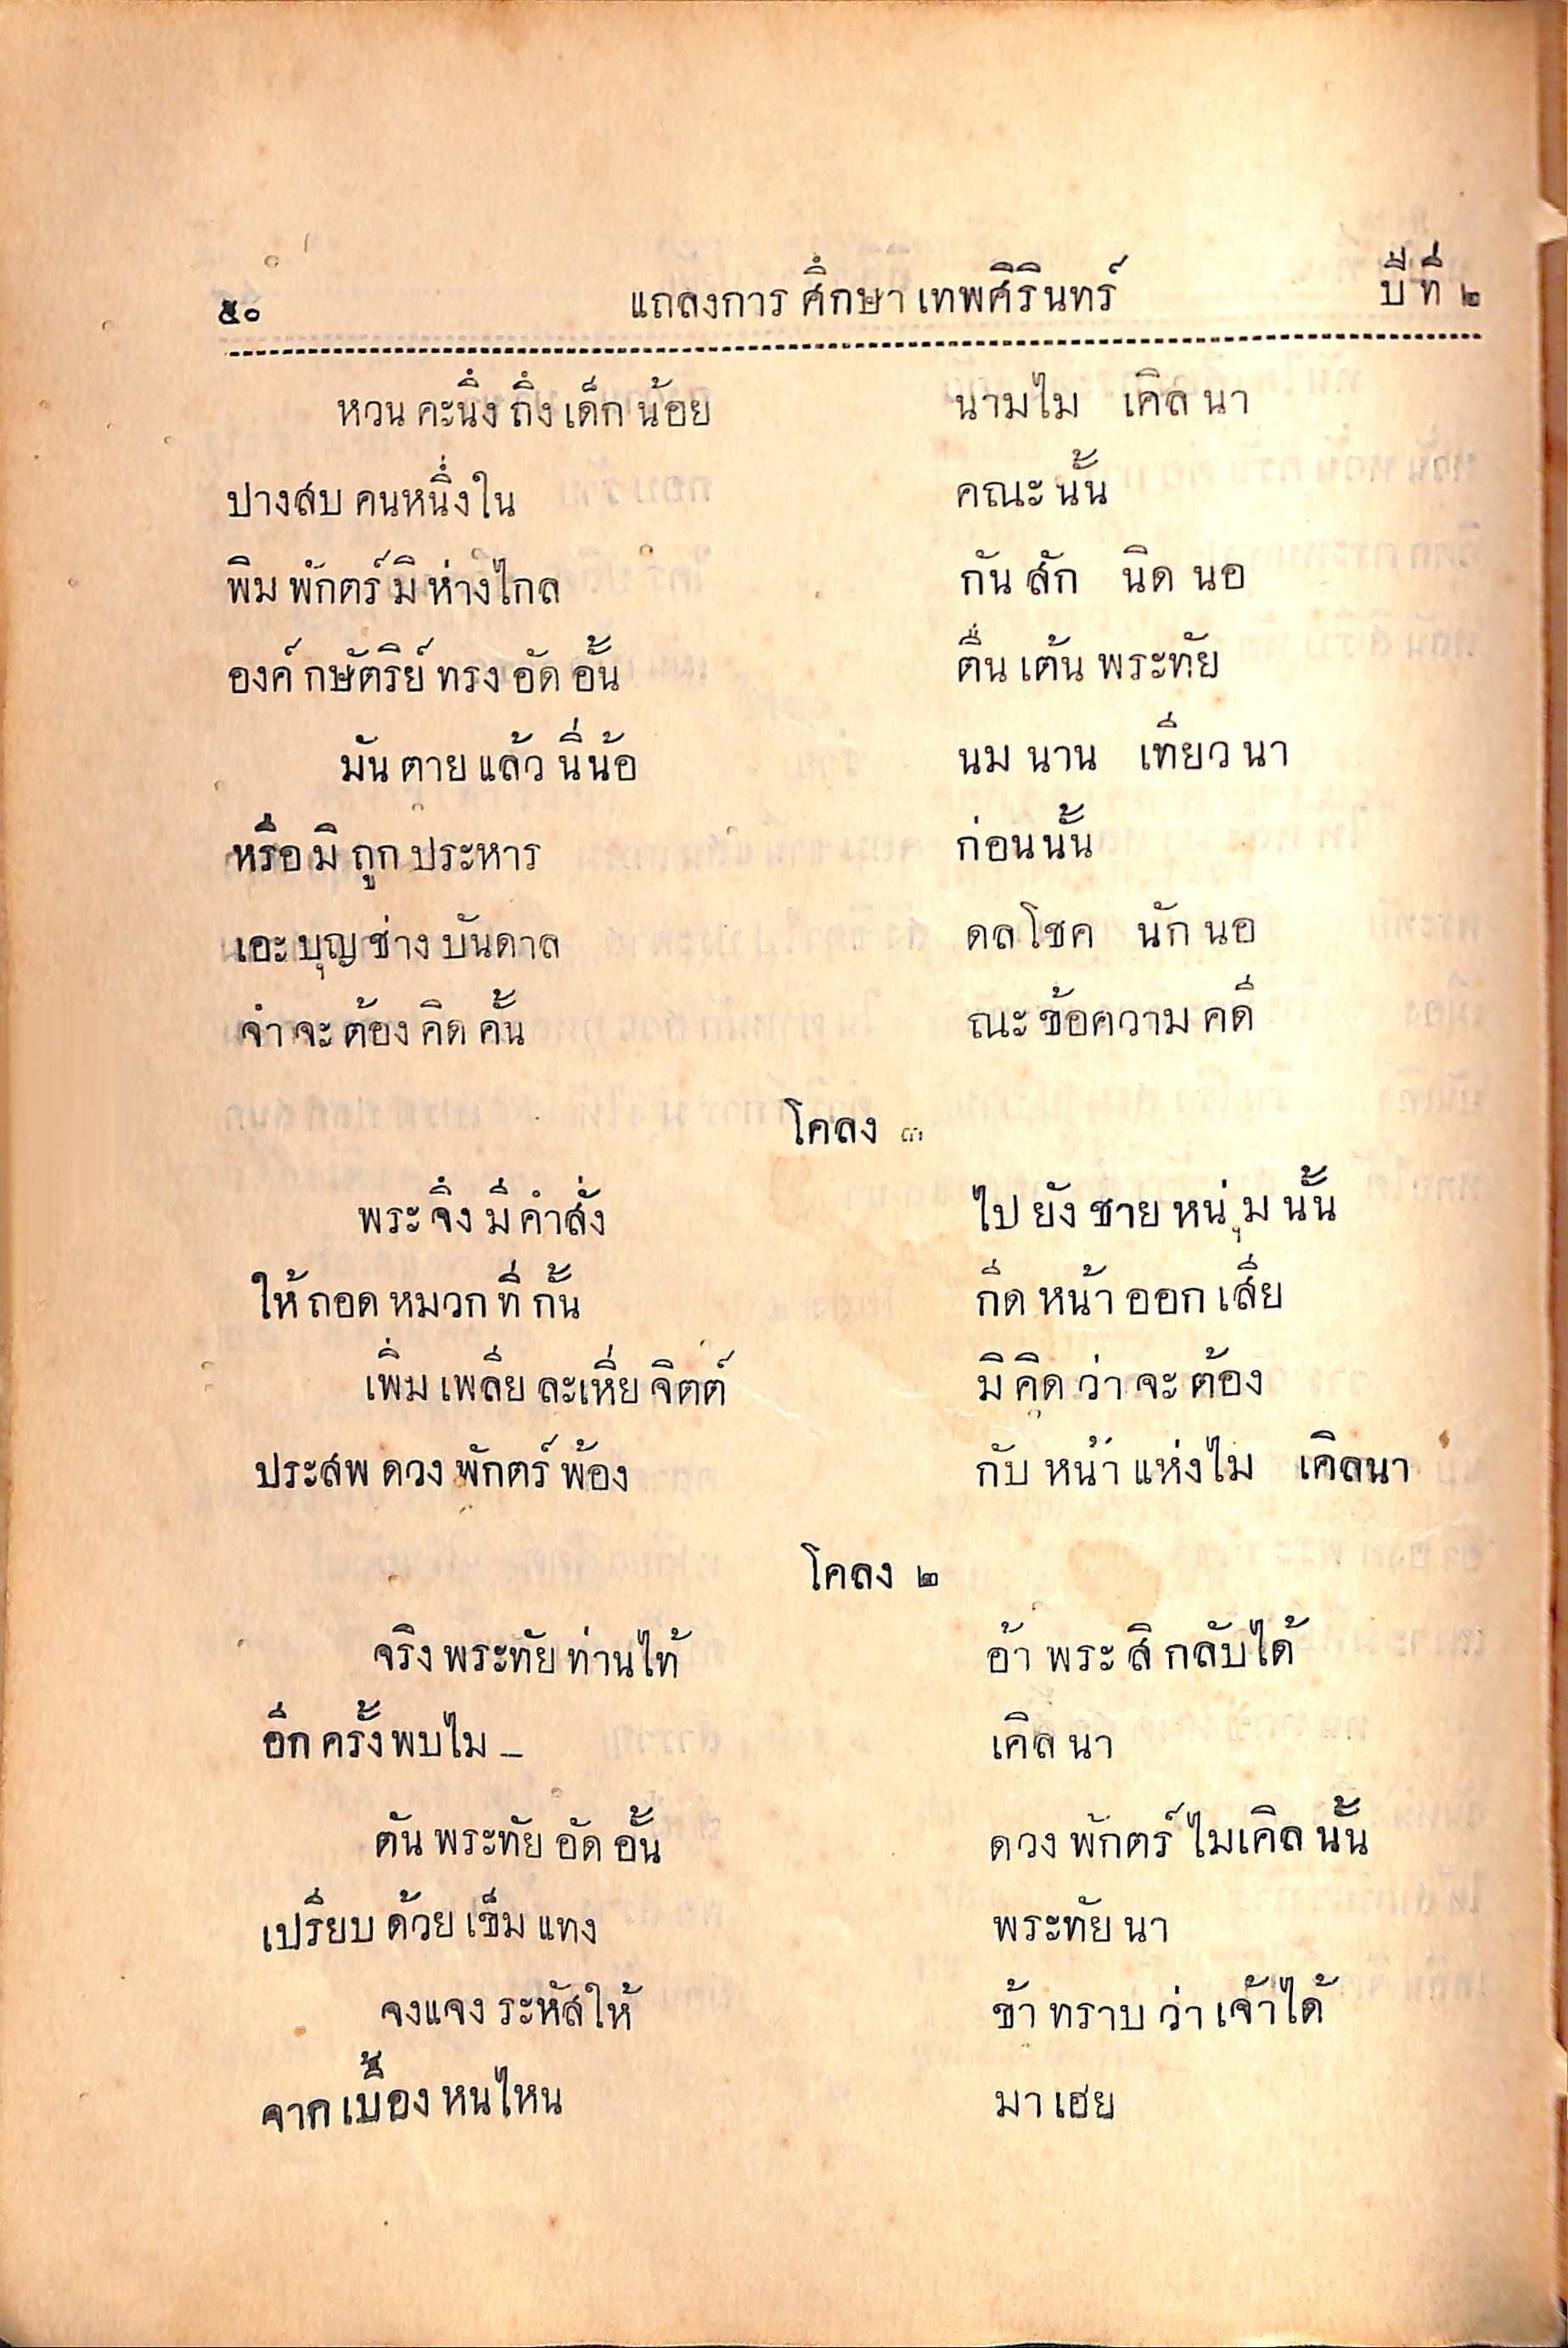 ๕๐ แถลงการศึกษาเทพศิรินทร์ ปีที่ ๒
หวนคะนึงถึงเด็กน้อย นามไม เคิลนา
ปางสบคนหนึ่งใน คณะนั้น
พิมพักตร์มิห่างไกล กันสัก นิดนอ
องค์กษัตริย์ทรงอัดอั้น ตื่นเต้นพระทัย
มันตายแล้วนี่น้อ นมนาน เทียวนา
หรือมิถูกประหาร ก่อนนั้น
เอะบุญช่างบันดาล ดลโชค นักนอ
จำจะต้องคิดคั้น ณะข้อความคดี
โคลง ๓
พระจึงมีคำสั่ง ไปยังชายหนุ่มนั้น
ให้ถอดหมวกที่กั้น กีดหน้าออกเสีย
เพิ่มเพลียละเหี่ยจิตต์ มิคิดว่าจะต้อง
ประสพดวงพักตร์พ้อง กับหน้าแห่งไม เคิลนา
โคลง ๒
จริงพระทัยท่านไท้ อ้าพระสิกลับได้
อีกครั้งพบไม_ เคิลนา
ตันพระทัยอัดอั้น ดวงพักตร์ไมเคิลนั้น
เปรียบด้วยเข็มแทง พระทัยนา
จงแจงระหัสให้ ข้าทราบว่าเจ้าได้
จากเบื้องหนไหน มาเฮย